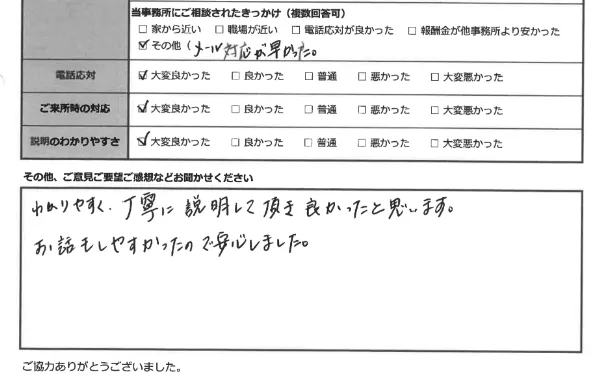 当事務所にご相談されたきっかけ（複数回答可）
□ 家から近い □ 職場が近い □ 電話応対が良かった □ 報酬金が他事務所より安かった
☑ その他（メール対応が早かった。
電話応対 ☑ 大変良かった □ 良かった □ 普通 □ 悪かった □ 大変悪かった
ご来所時の対応 ☑ 大変良かった □ 良かった □ 普通 □ 悪かった □ 大変悪かった
説明のわかりやすさ ☑ 大変良かった □ 良かった □ 普通 □ 悪かった □ 大変悪かった
その他、ご意見ご要望ご感想などお聞かせください
わかりやすく、丁寧に説明して頂き良かったと思います。
お話もしやすかったので安心しました。
ご協力ありがとうございました。